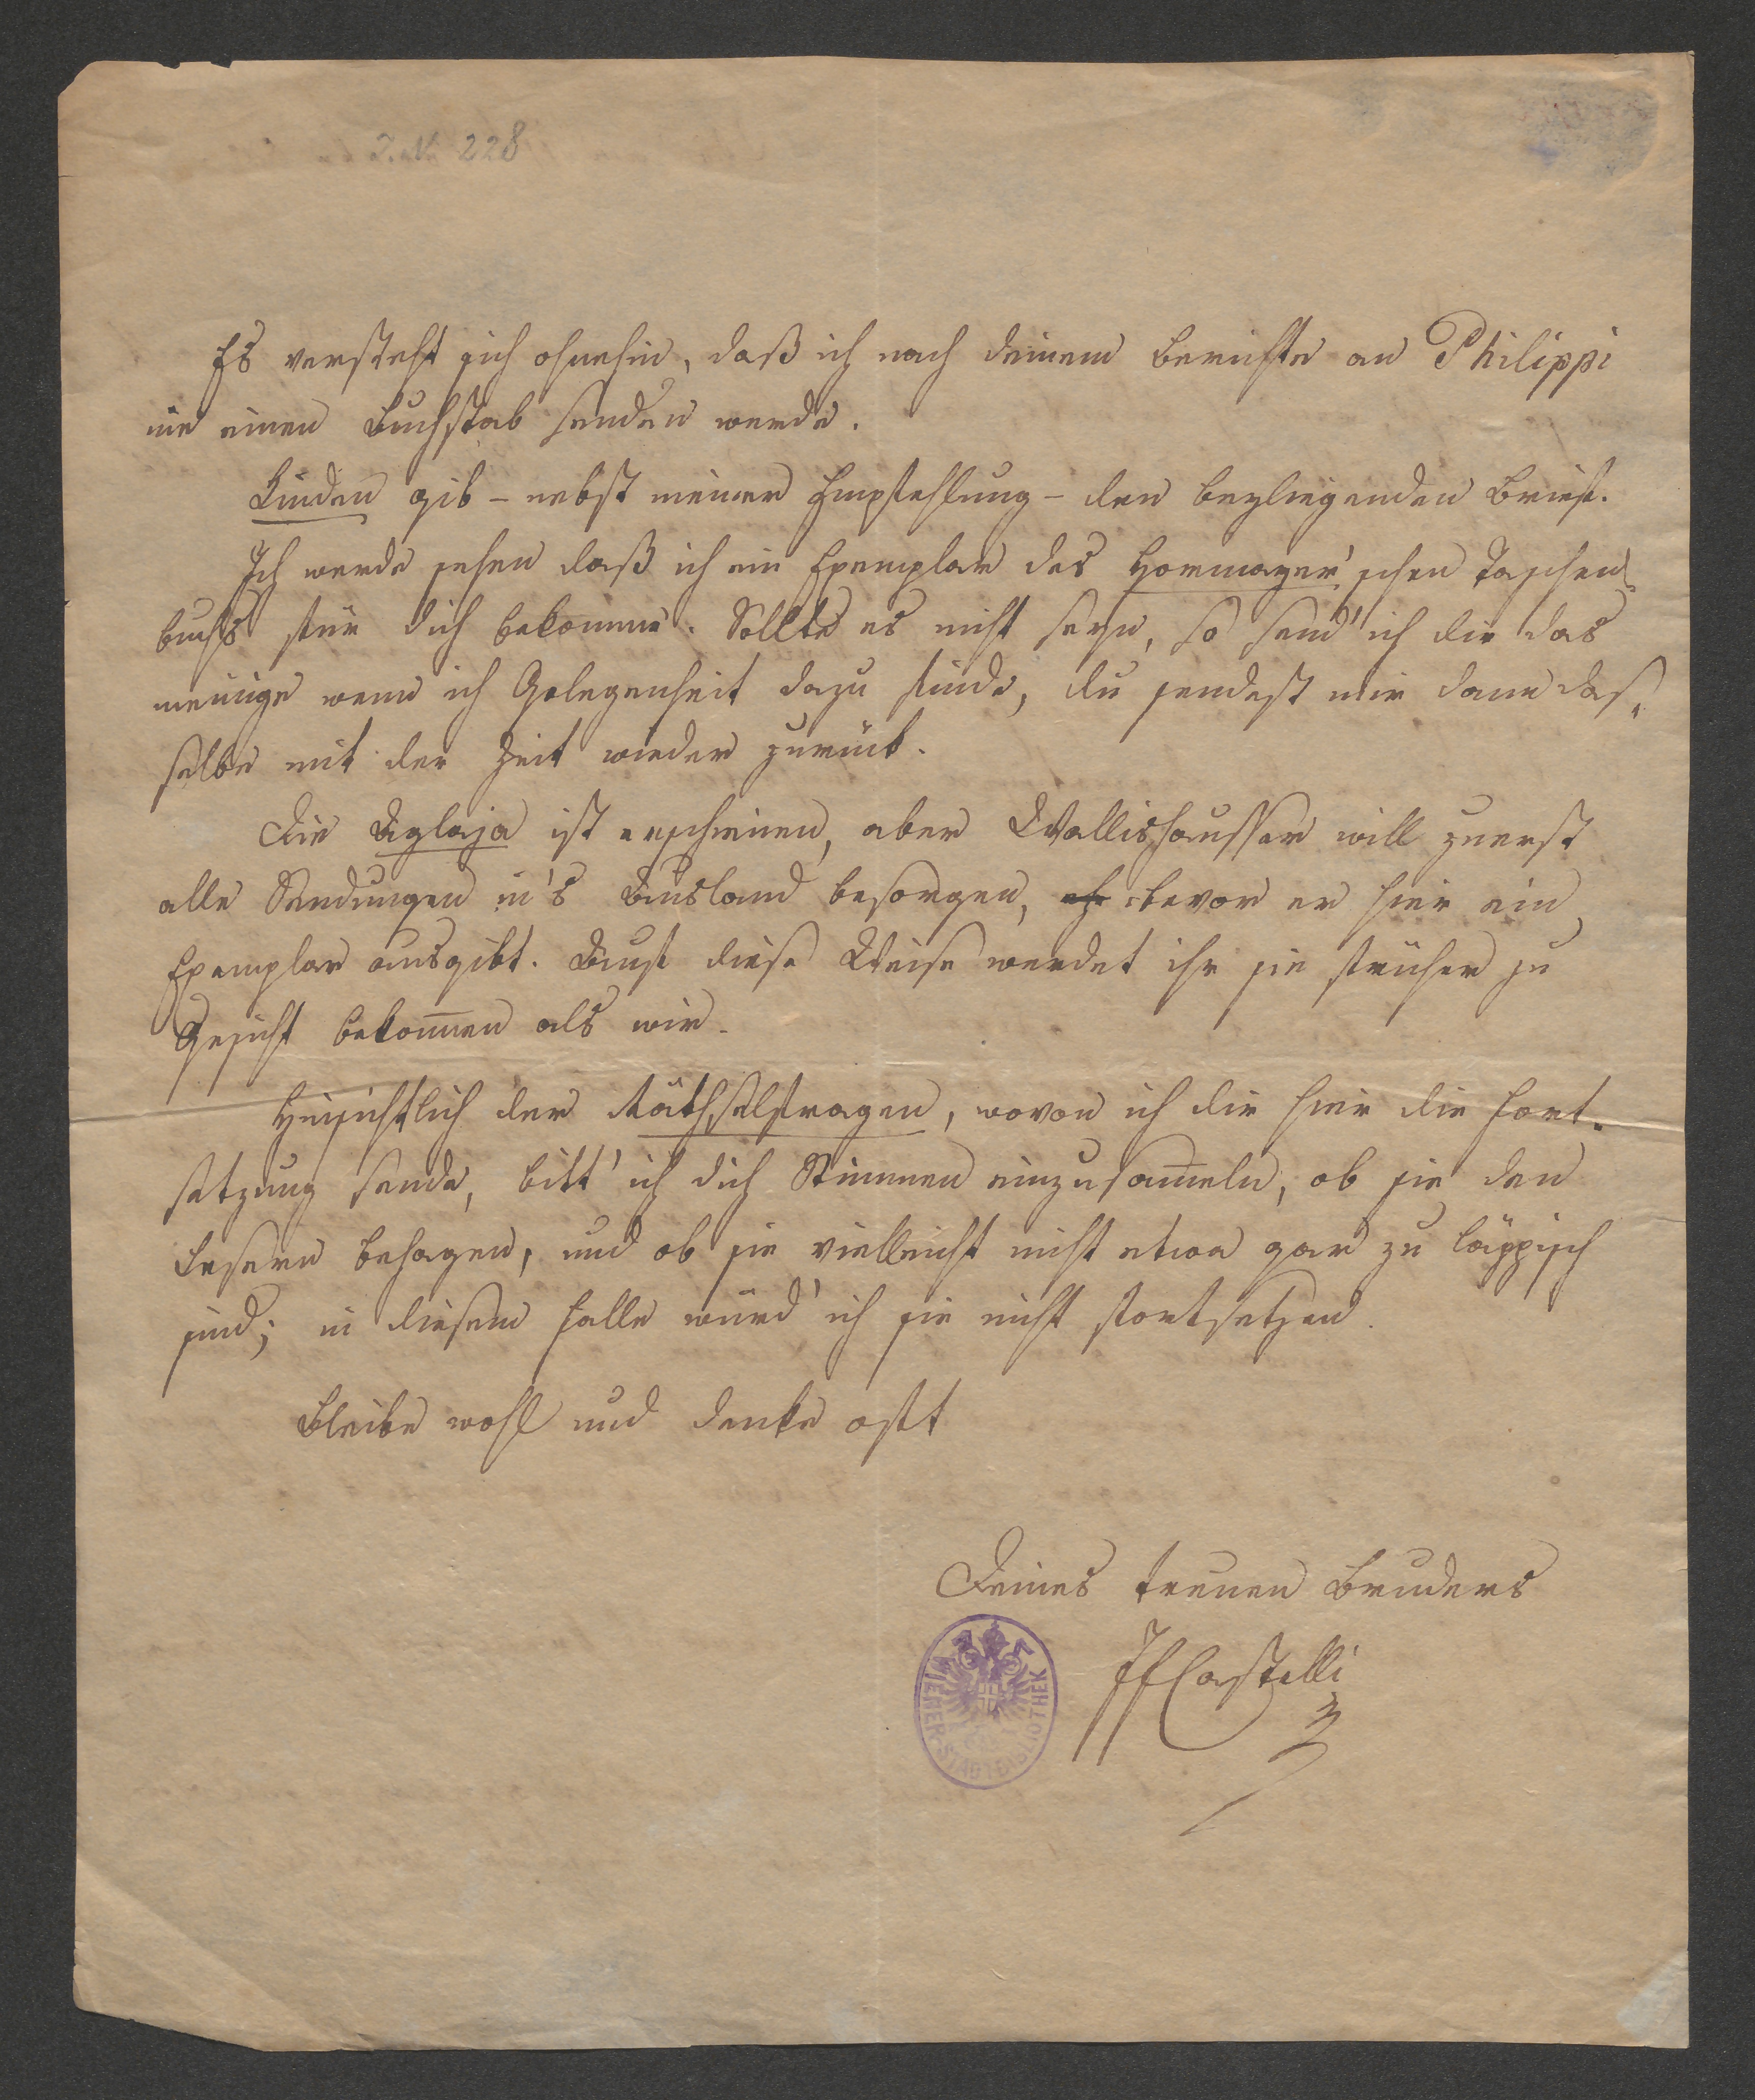 I. N. 228
Es versteht sich ohnehin, daß ich nach deinem Berichte an Philippi
nie einen Buchstab senden werde.
Linden gib – nebst meiner Empfehlung – den beyliegenden Brief.
Ich werde sehen daß ich ein Exemplar des Hormayer'schen Taschen-
buchs für dich bekomme. Sollte es nicht seyn, so send' ich dir das
meinige wenn ich Gelegenheit dazu finde, du sendest mir dann das-
selbe mit der Zeit wieder zurück.
Die Aglaja ist erschienen, aber Wallishausser will zuerst
alle Sendungen in's Ausland besorgen, eh bevor er hier ein
Exemplar ausgibt. Auf diese Weise werdet ihr sie früher zu
Gesicht bekom̅en als wir.
Hinsichtlich der Räthselfragen, wovon ich dir hier die Fort-
setzung sende, bitt' ich dich Stimmen einzusam̅eln, ob sie den
Lesern behagen, und ob sie vielleicht nicht etwa gar zu läppisch
sind; in diesem Falle würd' ich sie nicht fortsetzen.
Bleibe wohl und denke oft
Deines treuen Bruders
IFCastelli
WIENER STADTBIBLIOTHEK